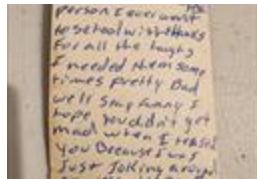 person I ever went
to school with thanks
For all the laughs
I needed them some
times pretty Bad
we'll stay funny I
hope you didn't get
mad when I teased
you Because I was
Just Joking around